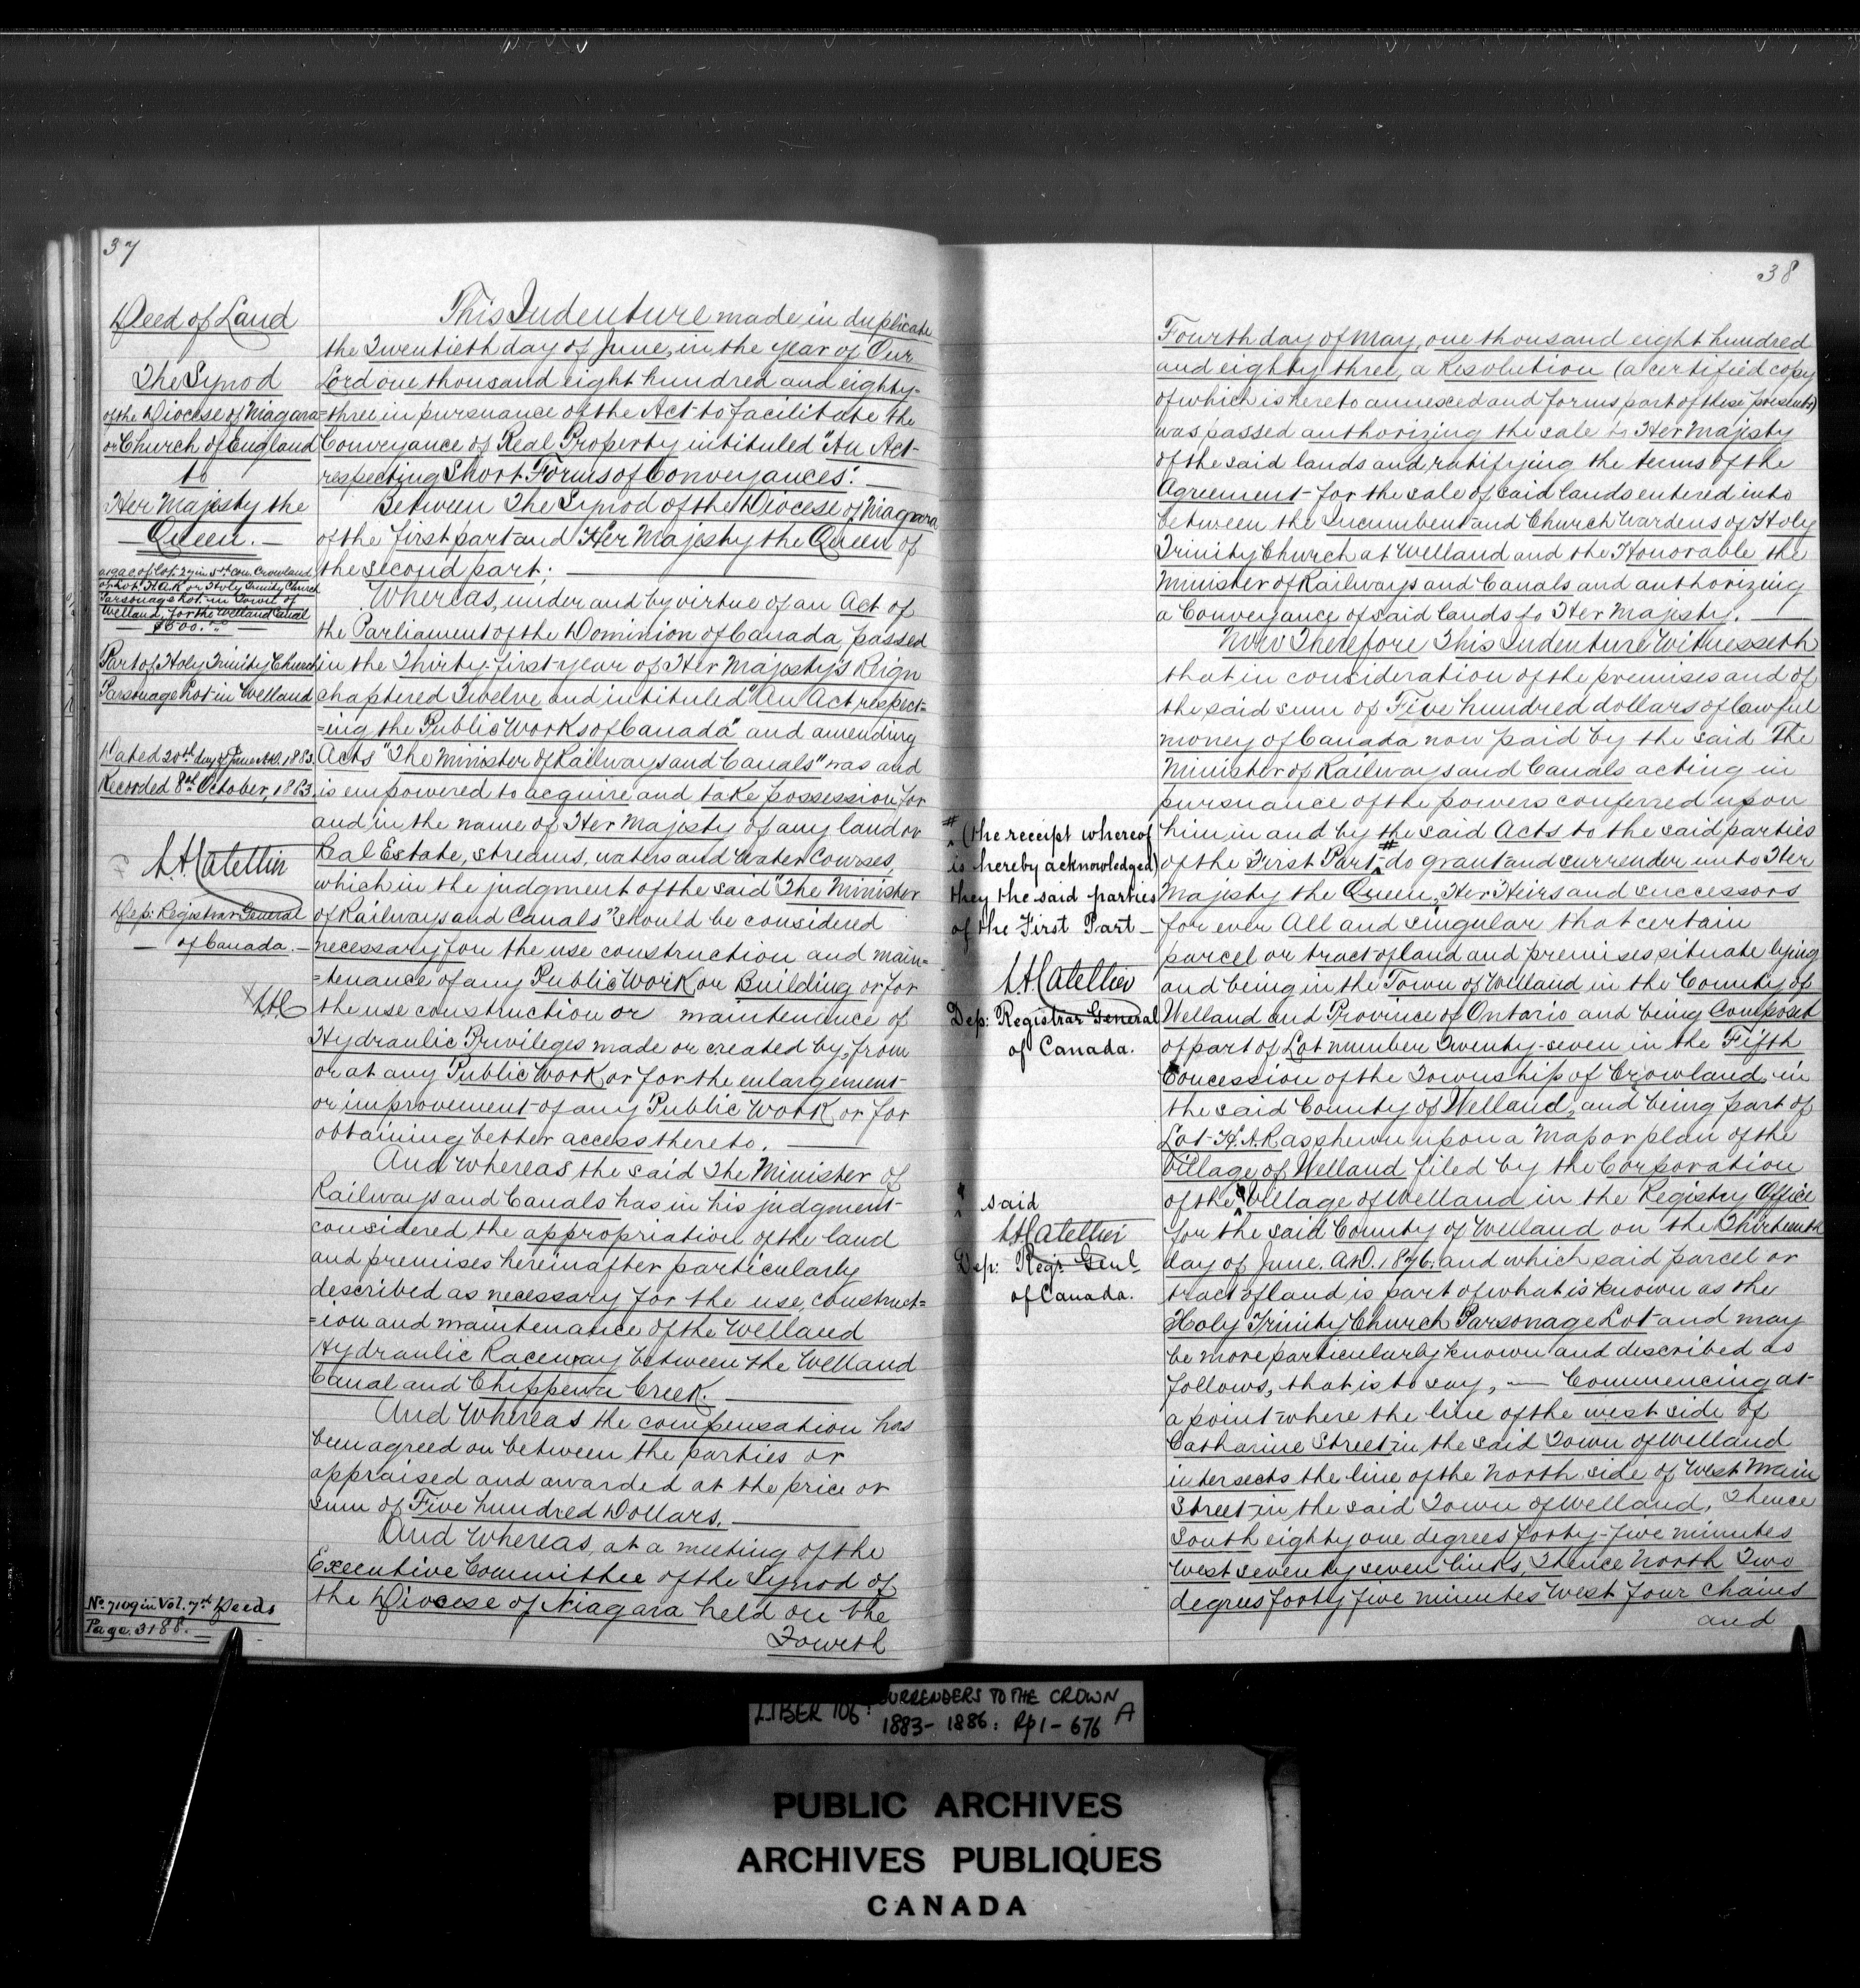 37
Deed of Land
The Synod
of the Diocese of Niagara
or Church of England
to
Her Majesty the
Queen. —
of Lot 27 in 5th Con. Crowland
of Lot H.A.R. or Holy Trinity Church
Parsonage Lot in Town of
Welland, for the Welland Canal
— $500.00 —
Part of Holy Trinity Church
Parsonage Lot in Welland
Dated 20th day of June A.D. 1883.
Recorded 8th October, 1883.
Dep: Registrar General
— of Canada. —
No. 7109 in Vol. 7th Deeds
Page. 3188. —
This Indenture made in duplicate
the Twentieth day of June, in the year of Our
Lord one thousand eight hundred and eighty-
=three in pursuance of the Act to facilitate the
Conveyance of Real Property intituled "An Act
respecting Short Forms of Conveyances". —
Between The Synod of the Diocese of Niagara
of the first part and Her Majesty the Queen of
the second part; —
Whereas, under and by virtue of an Act of
the Parliament of the Dominion of Canada, passed
in the Thirty-first year of Her Majesty's Reign
chaptered Twelve and intituled "An Act respect=
=ing the Public Works of Canada" and amending
Acts "The Minister of Railways and Canals" was and
is empowered to acquire and take possession for
and in the name of Her Majesty of any land or
Real Estate, streams, waters and water courses,
which in the judgment of the said "The Minister
of Railways and Canals" should be considered
necessary for the use construction and main=
=tenance of any Public Work or Building or for
the use construction or maintenance of
Hydraulic Privileges made or created by, from
or at any Public Work, or for the enlargement
or improvement of any Public Work or for
obtaining better access thereto. —
And whereas, the said The Minister of
Railways and Canals has in his judgment
considered the appropriation of the land
and premises hereinafter particularly
described as necessary for the use, construct=
=ion and maintenance of the Welland
Hydraulic Raceway between the Welland
Canal and Chippewa Creek. —
And Whereas the compensation has
been agreed on between the parties or
appraised and awarded at the price or
sum of Five hundred Dollars. —
And Whereas, at a meeting of the
Executive Committee of the Synod of
the Diocese of Niagara held on the
Fourth
38
# (the receipt whereof
is hereby acknowledged)
they the said parties
of the First Part —
Dep: Registrar General
of Canada.
said
Dep: Regr. Genl.
of Canada.
Fourth day of May, one thousand eight hundred
and eighty three, a Resolution (a certified copy
of which is hereto annexed and forms part of these presents)
was passed authorizing the sale to Her Majesty
of the said lands and ratifying the terms of the
Agreement for the sale of said lands entered into
between the Incumbent and Church Wardens of Holy
Trinity Church at Welland and the Honorable the
Minister of Railways and Canals and authorizing
a Conveyance of said lands to Her Majesty. —
Now Therefore This Indenture Witnesseth
that in consideration of the premises and of
the said sum of Five hundred dollars of lawful
money of Canada now paid by the said The
Minister of Railways and Canals acting in
pursuance of the powers conferred upon
him in and by the said Acts to the said parties
of the First Part # do grant and surrender unto Her
Majesty the Queen, Her Heirs and successors
for ever All and singular that certain
parcel or tract of land and premises situate lying
and being in the Town of Welland in the County of
Welland and Province of Ontario and being Composed
of part of Lot number Twenty-seven in the Fifth
Concession of the Township of Crowland, in
the said County of Welland, and being part of
Lot H.A.R as shewn upon a Map or plan of the
Village of Welland filed by the Corporation
of the Village of Welland in the Registry Office
for the said County of Welland on the Thirteenth
day of June. A.D. 1876. and which said parcel or
tract of land is part of what is known as the
Holy Trinity Church Parsonage Lot and may
be more particularly known and described as
follows, that is to say, — Commencing at
a point where the line of the west side of
Catharine Street in the said Town of Welland
intersects the line of the North side of West Main
Street in the said Town of Welland, Thence
South eighty one degrees forty-five minutes
West seventy seven links, Thence North Two
degrees forty five minutes West four chains
and
LIBER 106: SURRENDERS TO THE CROWN A
1883 - 1886: Rp 1 - 676
PUBLIC ARCHIVES
ARCHIVES PUBLIQUES
CANADA